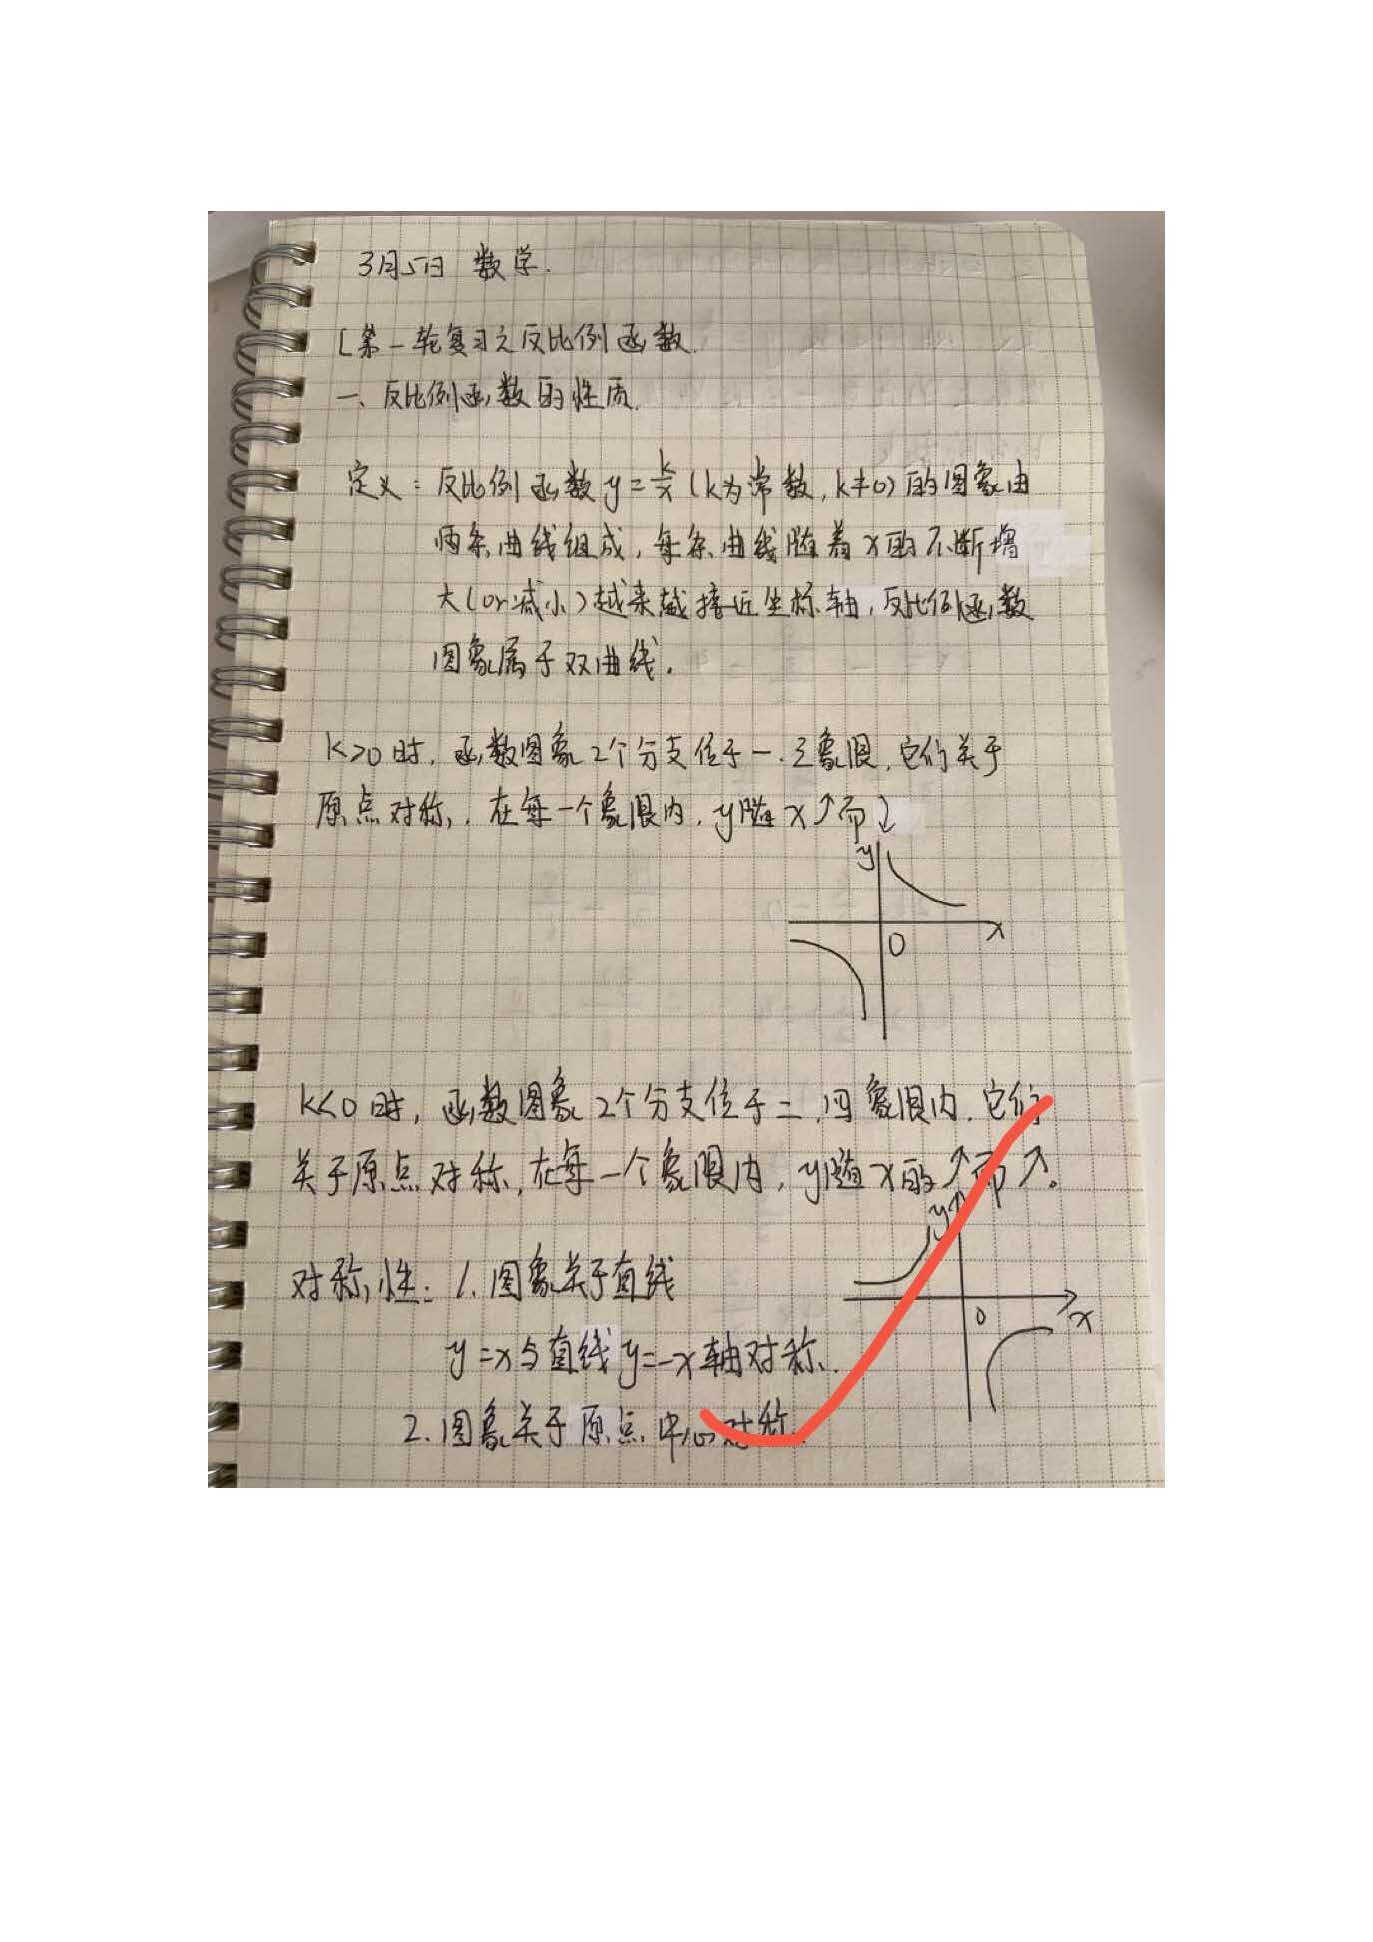 3月5日 数学.
[第一轮复习之反比例函数.
一、反比例函数的性质.
定义: 反比例函数 y=k/x (k为常数, k≠0) 的图象由
两条曲线组成, 每条曲线随着x的不断增
大(or减小)越来越接近坐标轴, 反比例函数
图象属于双曲线.
k>0时, 函数图象2个分支位于一.三象限, 它们关于
原点对称, 在每一个象限内, y随x↗而↘
y
x
0
k<0时, 函数图象2个分支位于二,四象限内. 它们
关于原点对称, 在每一个象限内, y随x的↗而↗。
y
对称性: 1. 图象关于直线
0
x
y=x与直线y=-x轴对称.
2. 图象关于原点中心对称.